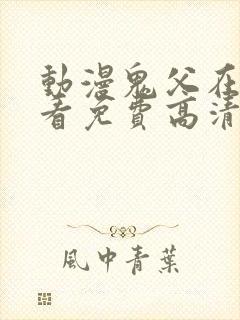 動漫鬼父在
看免費高清
風中青葉